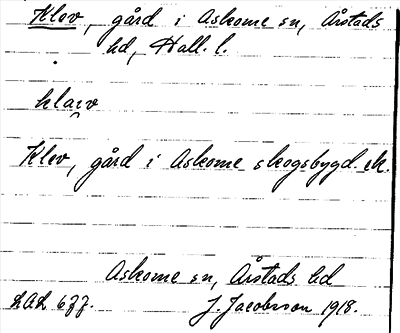 Klev, gård i Askome sn, Årstads
hd, Hall. l.
klæv
Klev, gård i Askome skogsbygd. ek.
Askome sn, Årstads hd
LAL 677. J. Jacobsson 1918.